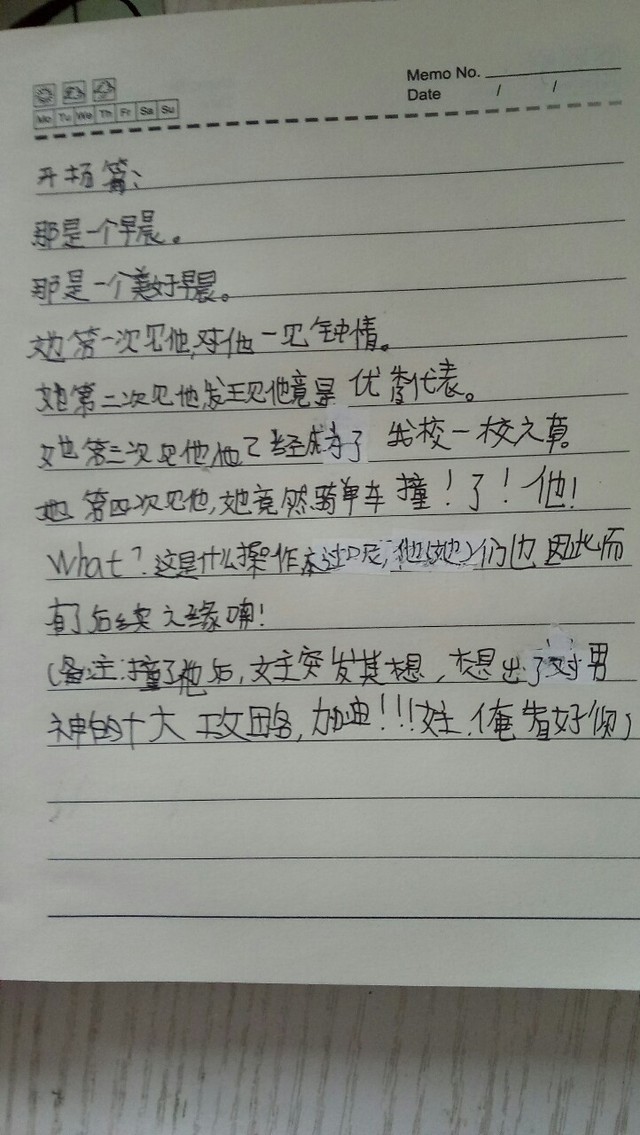 Memo No.
Date / /
Mo Tu We Th Fr Sa Su
开场篇:
那是一个早晨。
那是一个美好早晨。
她第一次见他,对他一见钟情。
她第二次见他发现他竟是 优秀代表。
她第三次见他,他已经成为了 学校一校之草。
她第四次见他,她竟然骑单车撞!了!他!
What?这是什么操作,不过呢,他(她)们也因此而
有了后续之缘喃!
(备注:撞了他后,女主突发其想,想出了对男
神的十大攻略,加油!!!女主,俺看好你)